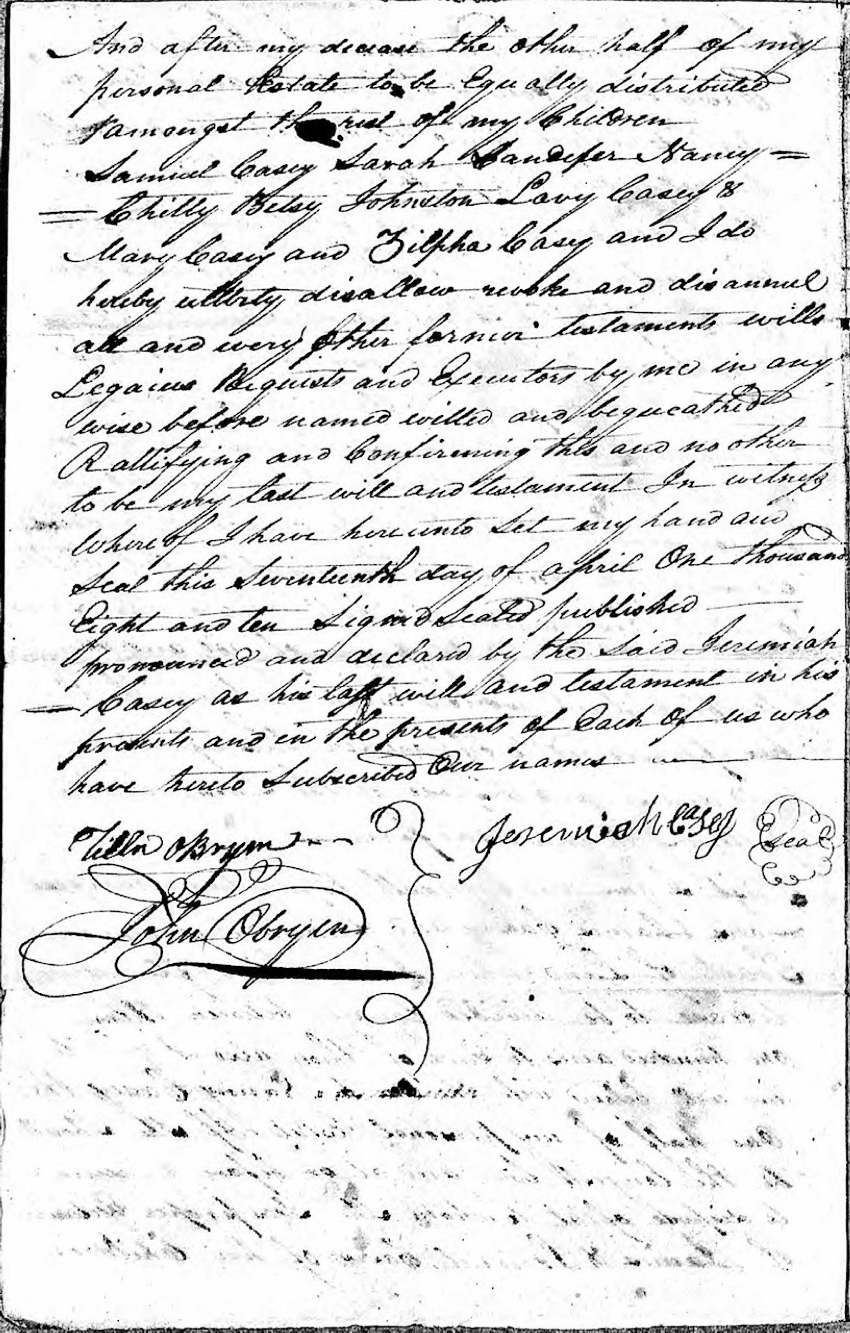 And after my decease the other half of my
personal Estate to be Equally distributed
amongst the rest of my Children
Samuel Casey Sarah Sandefer Nancy =
= Chilly Betsy Johnston Lavy Casey &
Mary Casey and Zilpha Casey and I do
hereby utterly disallow revoke and disannul
all and every other former testaments wills
Legacies Bequests and Executors by me in any
wise before named willed and bequeathed
Rattifying and Confirming this and no other
to be my last will and testament In witness
Whereof I have hereunto Set my hand and
Seal this Seventeenth day of april One thousand
Eight and ten Signed Sealed published
pronounced and declared by the said Jeremiah
= Casey as his last will and testament in his
presents and in the presents of Each of us who
have hereto Subscribed Our names
Obryen
Jeremiah Casey
Seal
John Obryen